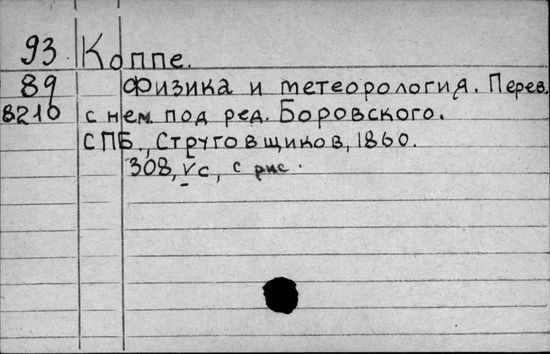 93 Коппе.
89 Физика и метеорология. Перев.
8210 с нем. под ред. Боровского.
СПБ., Струговщиков, 1860.
308, V с, с рис.